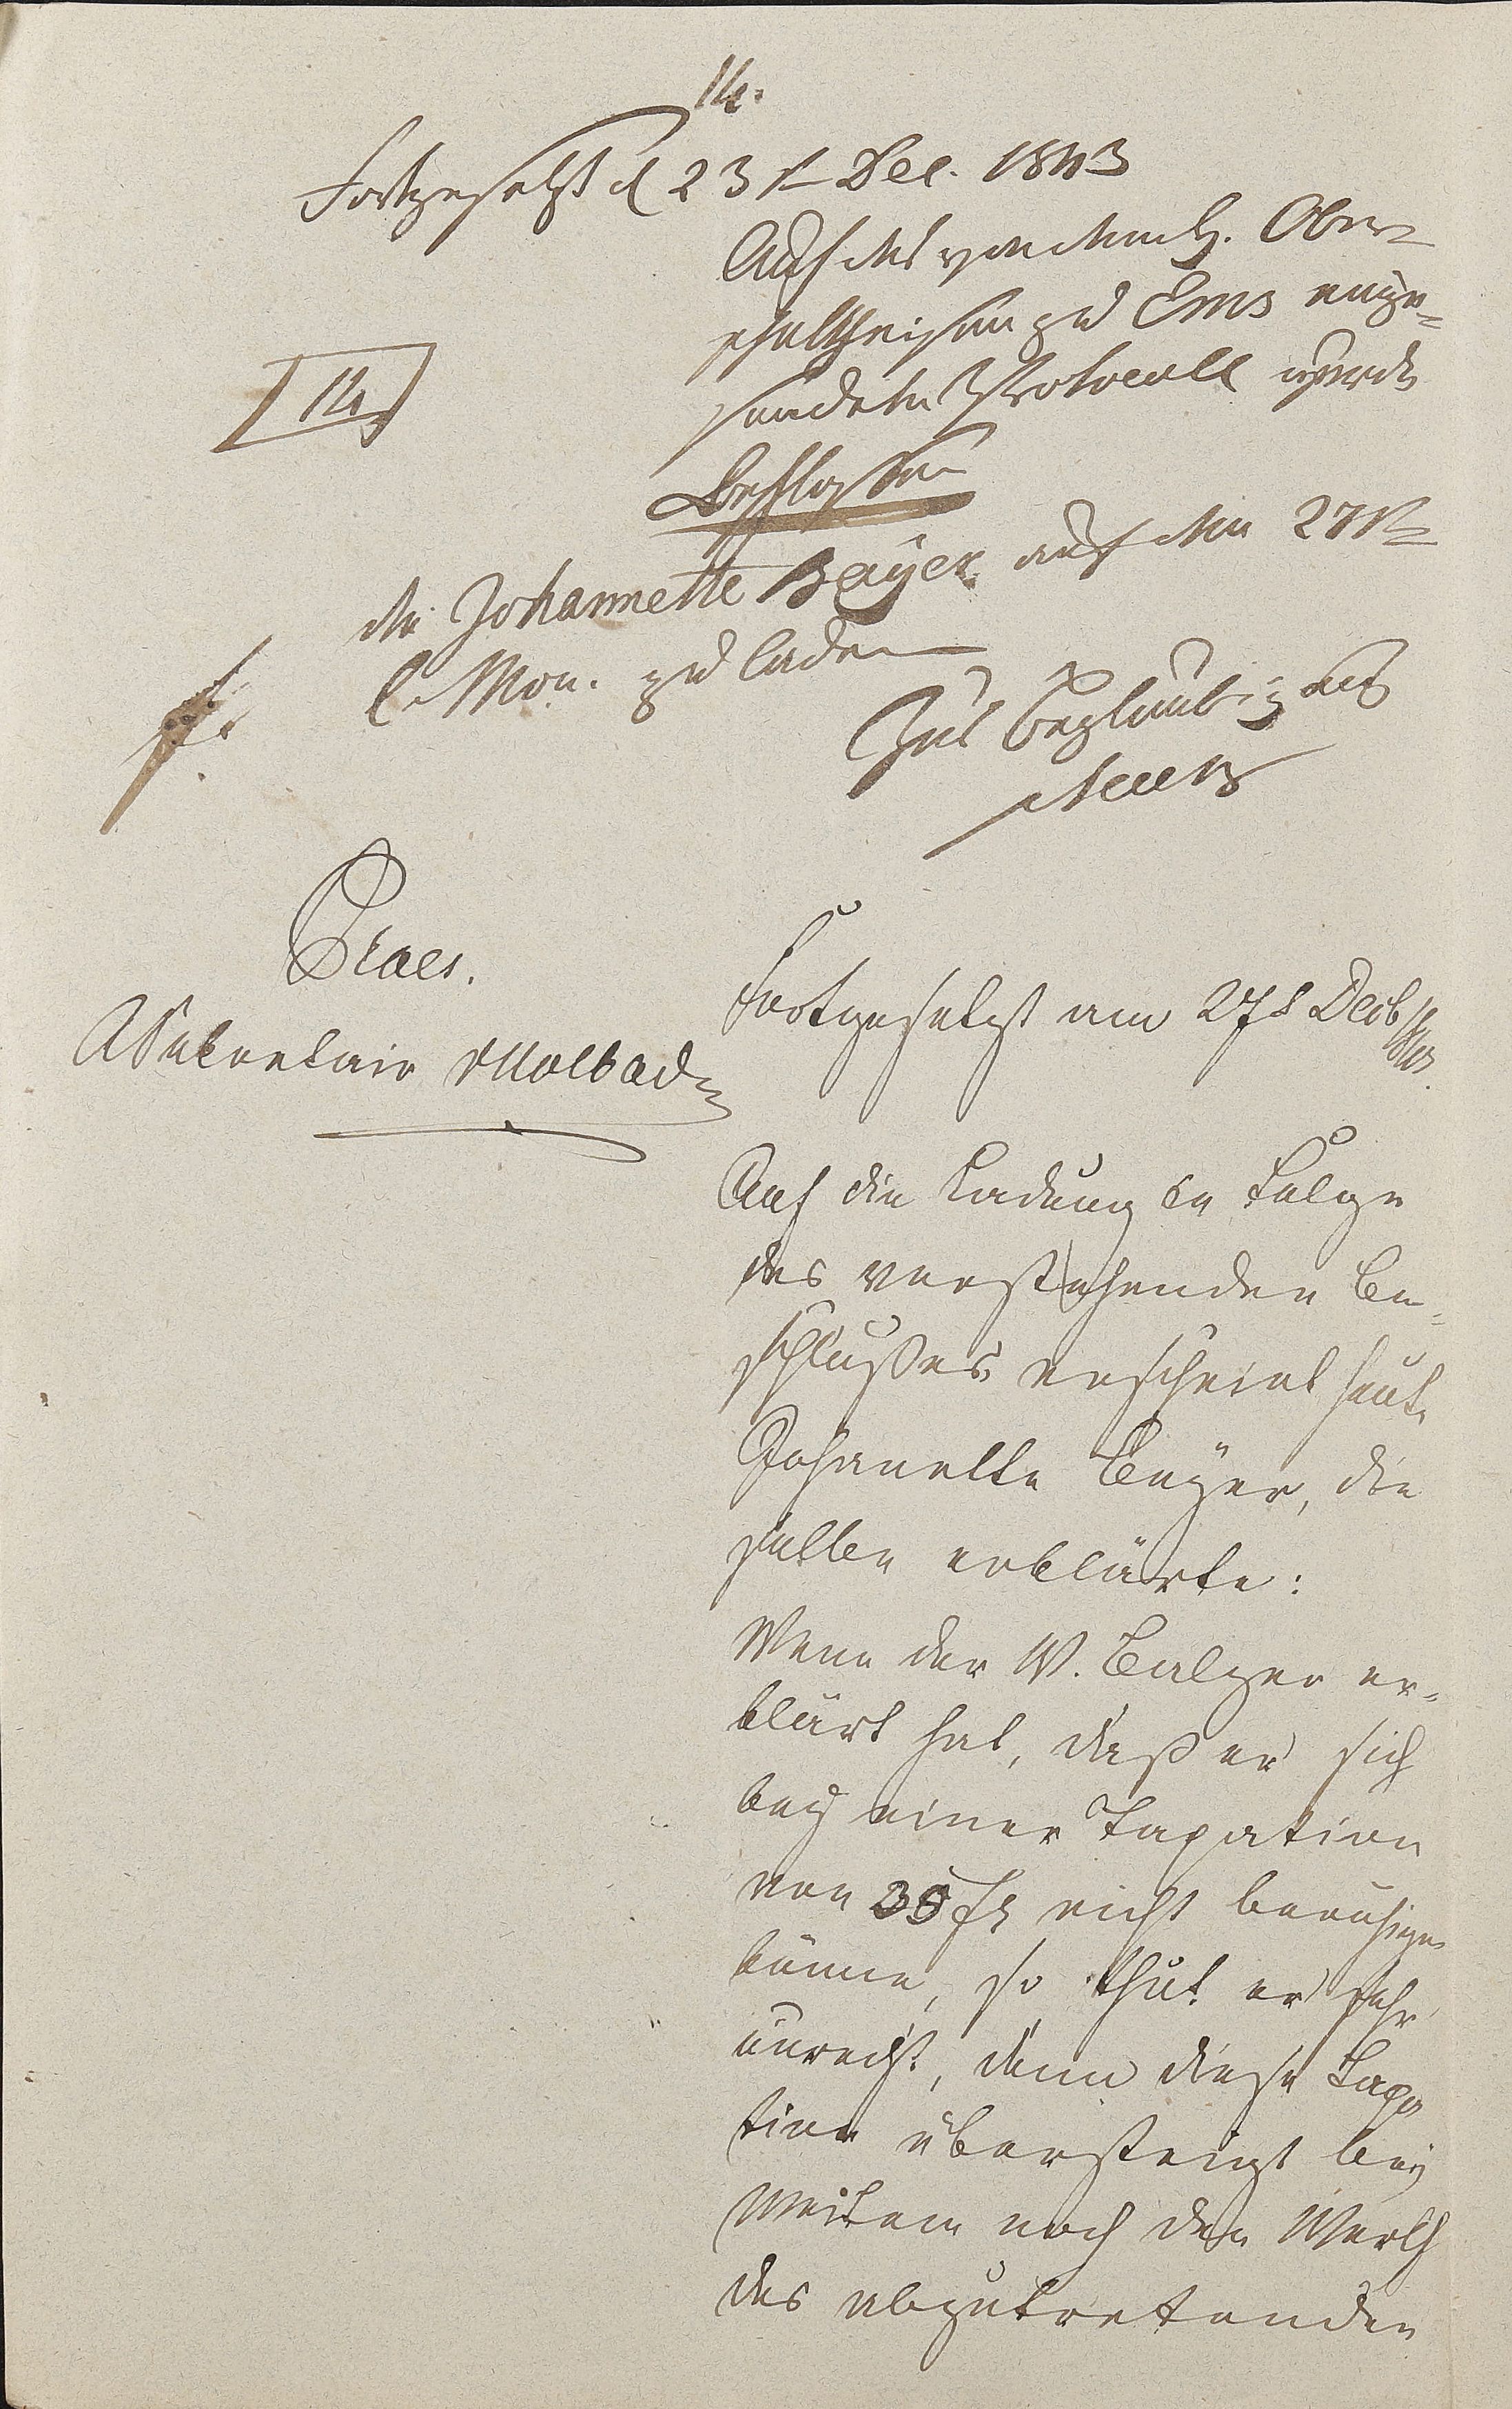 14.
Fortgesetzt d 23t Dec. 1843
Auf das von dem H. Ober-
schultheisen zu Ems einge-
sendete Protocoll wurde
12
Beschlossen
die Johannette Bayer auf den 27t
l. Mon. zu laden
Zur Beglaubigung
Praes.
Fortgesetzt am 27t Decb
Secretair
Auf die Ladung in Folge
des vorstehenden Be-
schlußes erscheint heute
Johanette Beyer, die
selbe erklärte:
Wenn der W. Balzer er-
klärt hat, daß er sich
bey einer Taxation
von 35 fl nicht beruhigen
könne, so thut er sehr
unrecht, denn diese Taxa
tion übersteigt bey
Weitem noch den Werth
des abzutretenden